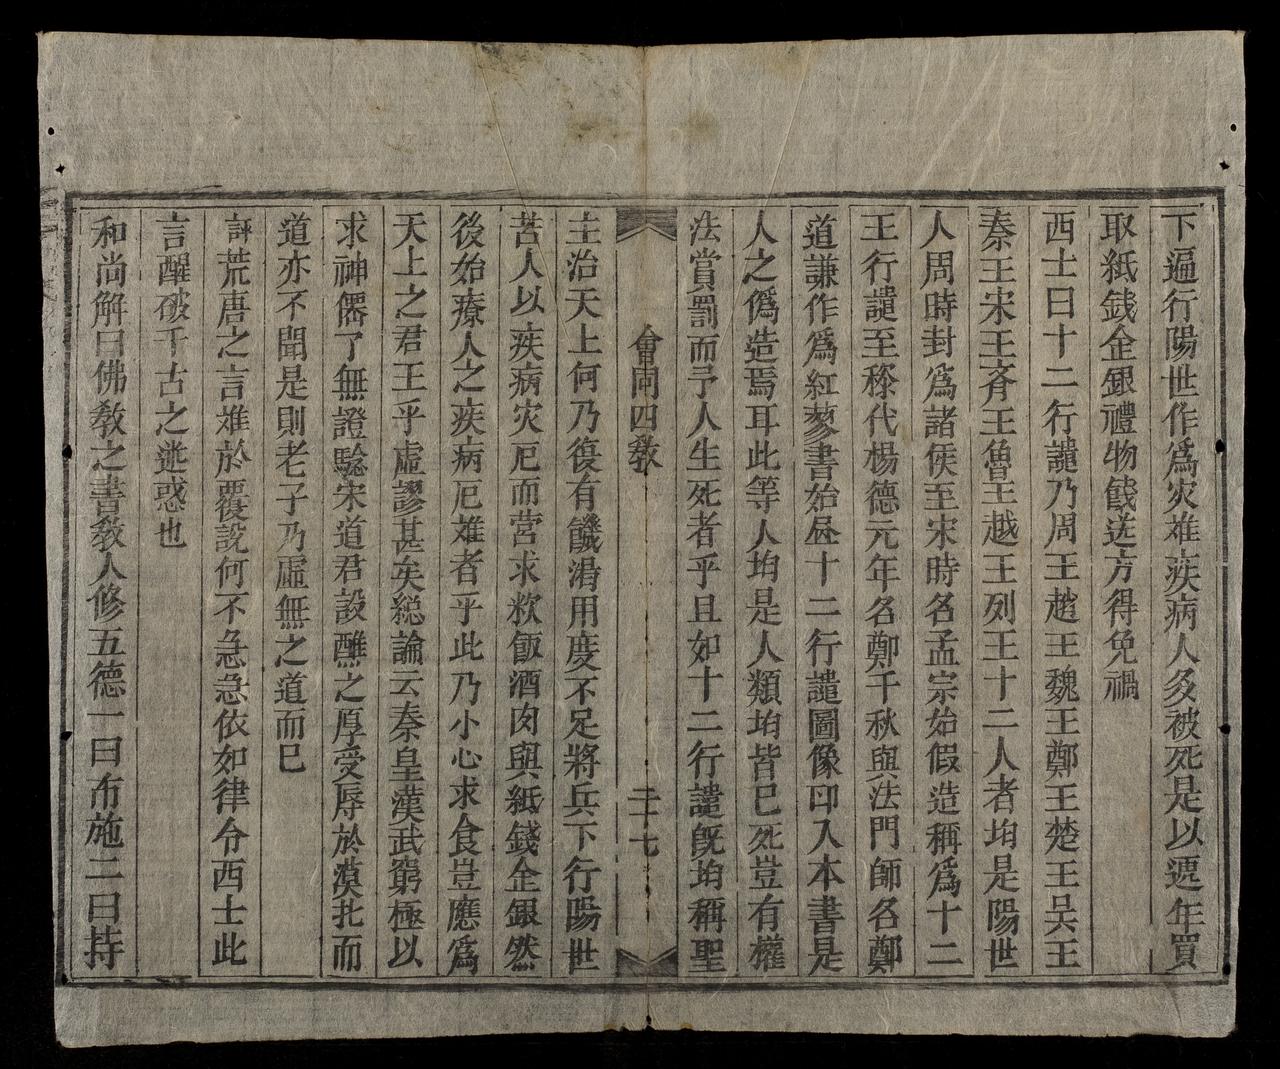 下遍行陽世作爲灾难疾病人多被死是以遞年買
取紙錢金銀禮物餞送方得免禍
西士曰十二行譴乃周王趙王魏王鄭王楚王吴王
秦王宋王斉王魯王越王列王十二人者均是陽世
人周時封爲諸侯至宋時名孟宗始假造稱爲十二
王行譴至𥘀代楊德元年名鄭千秋與法門師名鄭
道謙作爲紅蓼書始𢆥十二行譴圖像印入本書是
人之僞造焉耳此等人均是人類均皆巳死豈有權
法賞罰而予人生死者乎且如十二行譴旣均稱聖
會同四教
二十七
主治天上何乃復有饑渴用度不足將兵下行陽世
苦人以疾病灾厄而营求粢飯酒肉與紙錢金銀然
後始療人之疾病厄难者乎此乃小心求食豈應爲
天上之君王乎虛謬甚矣総論云秦皇漢武窮極以
求神僊了無證驗宋道君設醮之厚受辱於漠北而
道亦不聞是則老子乃虛無之道而巳
評荒唐之言难於覆說何不急急依如律令西士此
言醒破千古之迷惑也
和尚解曰佛教之書教人修五德一曰布施二曰持